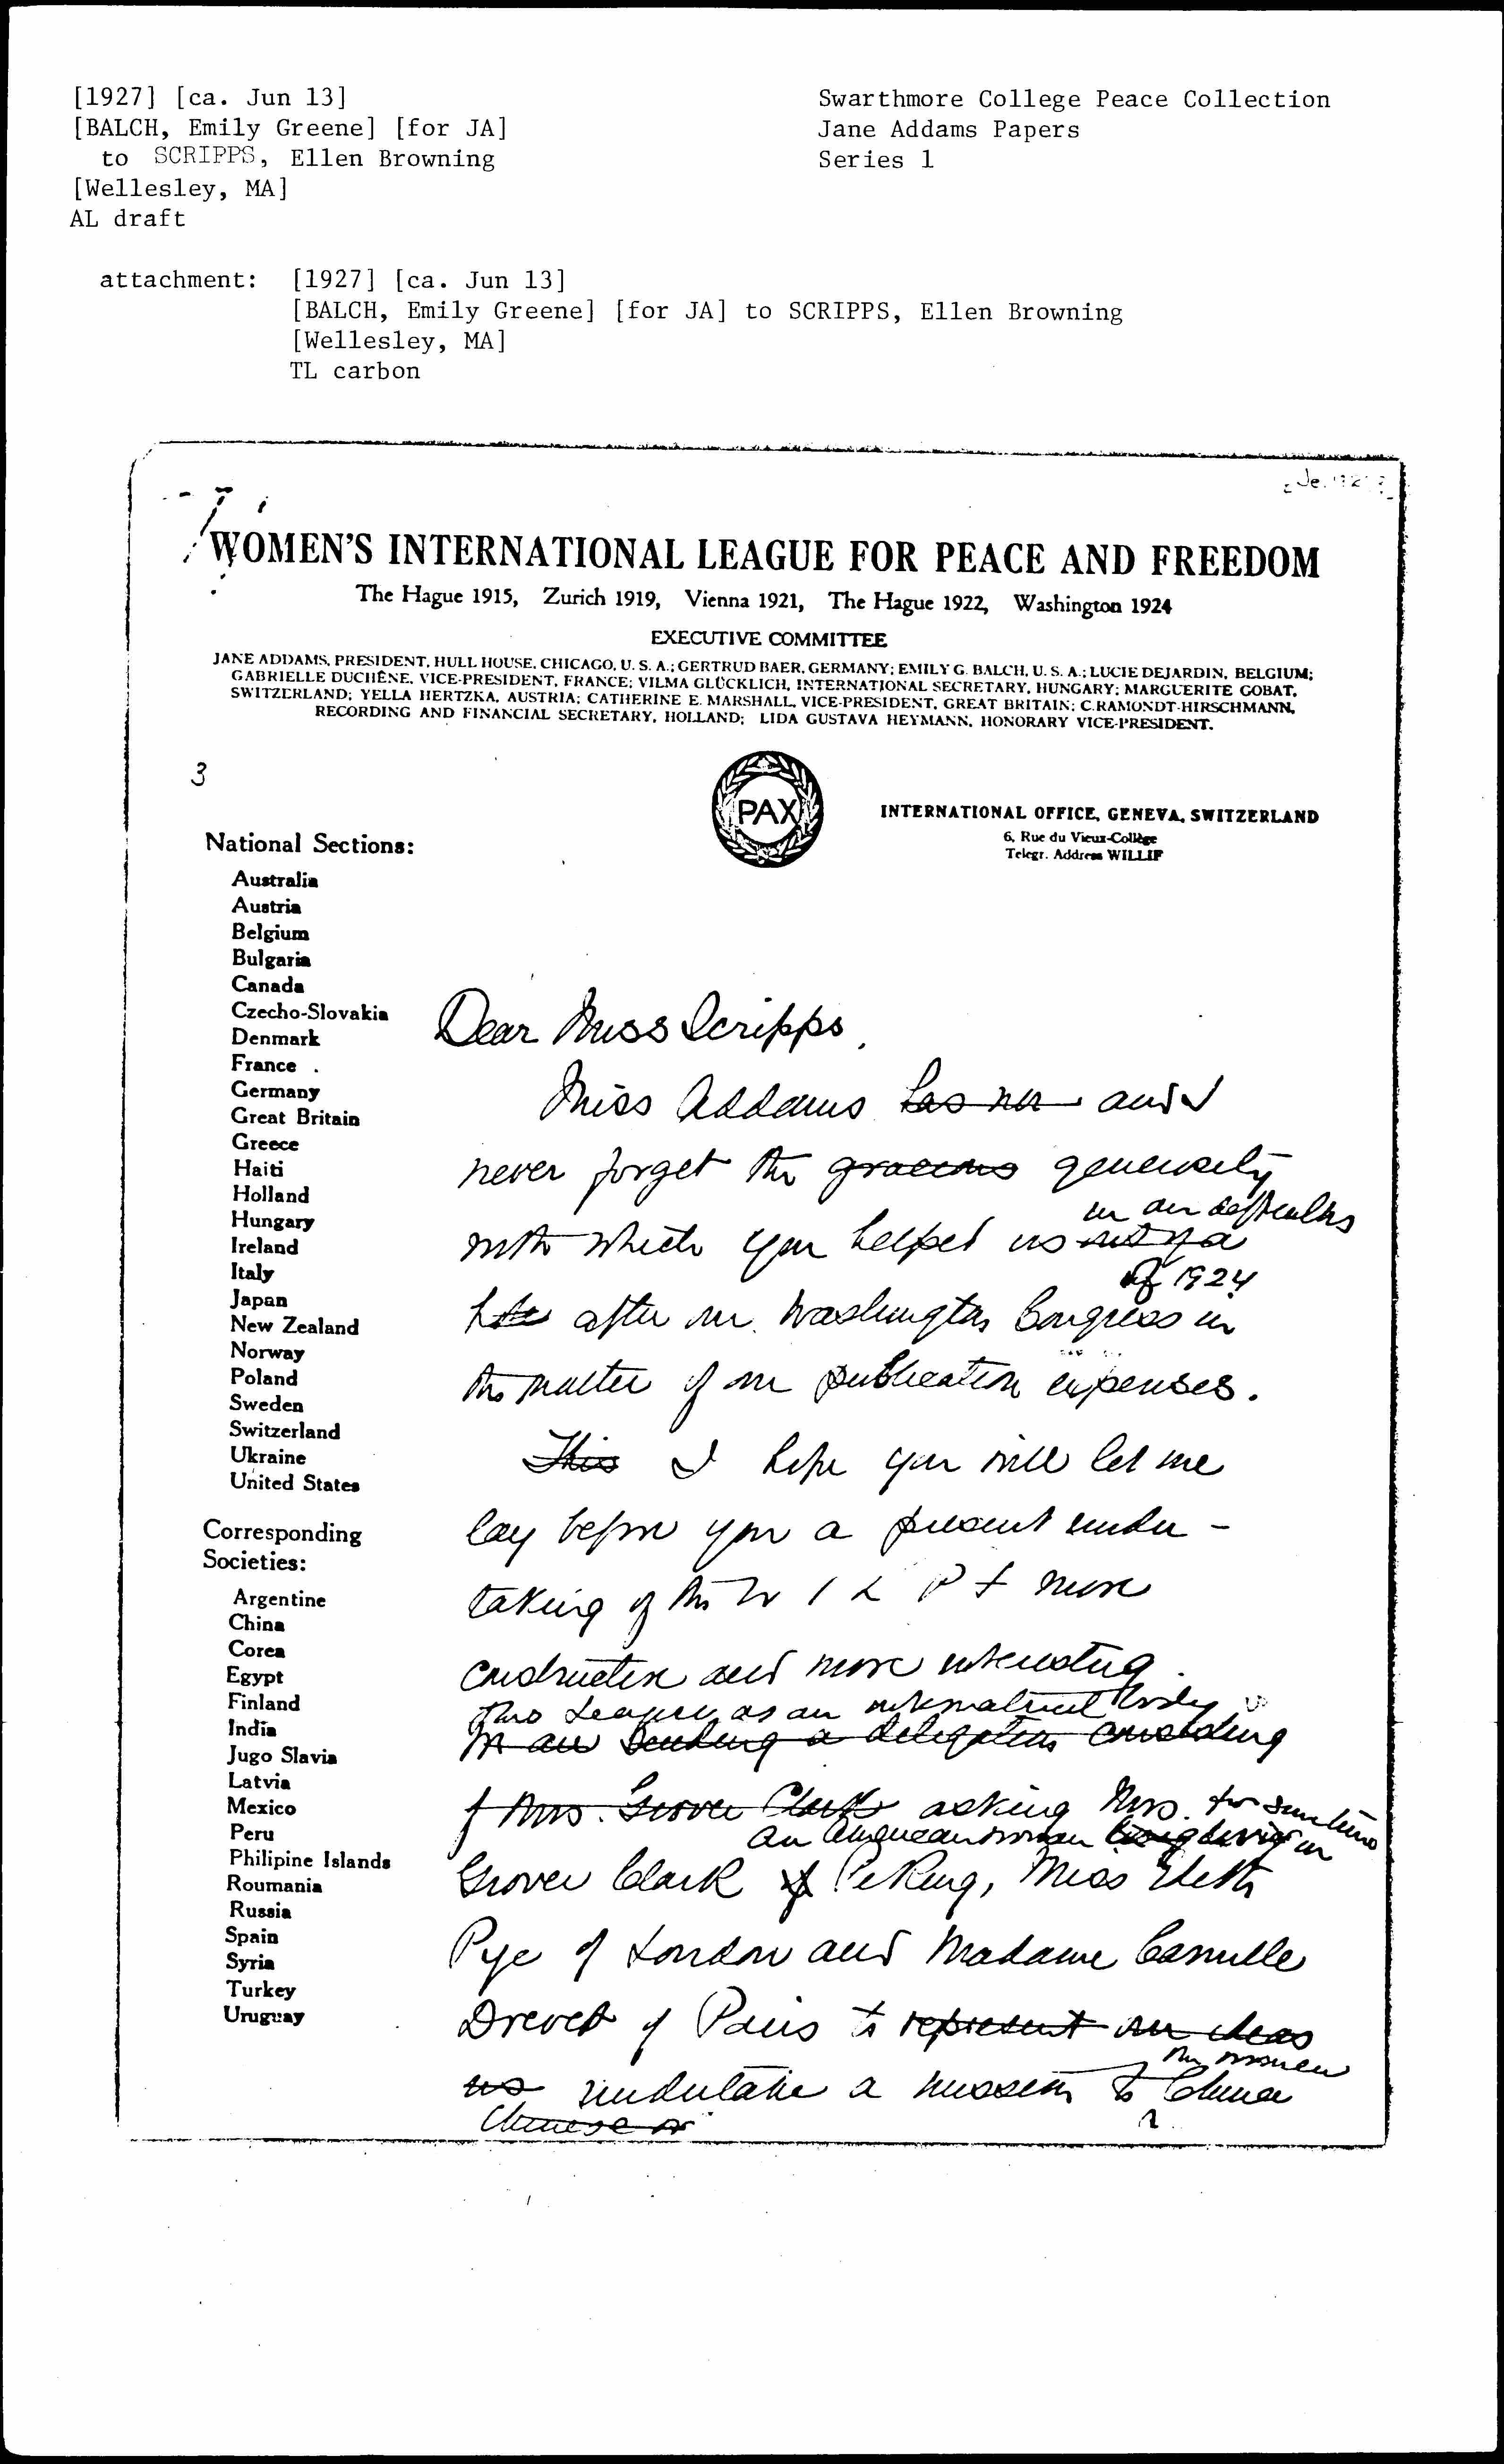 [1927] [ca. Jun 13]
[BALCH, Emily Greene] [for JA]
to SCRIPPS, Ellen Browning
[Wellesley, MA]
AL draft
Swarthmore College Peace Collection
Jane Addams Papers
Series 1
attachment: [1927] [ca. Jun 13]
[BALCH, Emily Greene] [for JA] to SCRIPPS, Ellen Browning
[Wellesley, MA]
TL carbon
WOMEN'S INTERNATIONAL LEAGUE FOR PEACE AND FREEDOM
The Hague 1915, Zurich 1919, Vienna 1921, The Hague 1922, Washington 1924
EXECUTIVE COMMITTEE
JANE ADDAMS, PRESIDENT, HULL HOUSE, CHICAGO, U. S. A.; GERTRUD BAER, GERMANY; EMILY G. BALCH, U. S. A.; LUCIE DEJARDIN, BELGIUM;
GABRIELLE DUCHÊNE, VICE-PRESIDENT, FRANCE; VILMA GLÜCKLICH, INTERNATIONAL SECRETARY, HUNGARY; MARGUERITE GOBAT,
SWITZERLAND; YELLA HERTZKA, AUSTRIA; CATHERINE E. MARSHALL, VICE-PRESIDENT, GREAT BRITAIN; C.RAMONDT-HIRSCHMANN,
RECORDING AND FINANCIAL SECRETARY, HOLLAND; LIDA GUSTAVA HEYMANN, HONORARY VICE-PRESIDENT.
3
PAX
INTERNATIONAL OFFICE, GENEVA, SWITZERLAND
6, Rue du Vieux-Collège
Telegr. Address WILLIF
National Sections:
Australia
Austria
Belgium
Bulgaria
Canada
Czecho-Slovakia
Denmark
France
Germany
Great Britain
Greece
Haiti
Holland
Hungary
Ireland
Italy
Japan
New Zealand
Norway
Poland
Sweden
Switzerland
Ukraine
United States
Corresponding
Societies:
Argentine
China
Corea
Egypt
Finland
India
Jugo Slavia
Latvia
Mexico
Peru
Philipine Islands
Roumania
Russia
Spain
Syria
Turkey
Uruguay
Dear Miss Scripps,
Miss Addams has and I
never forget the gracious generosity
in our difficulties
with which you helped us
of 1924
after our Washington Congress in
the matter of our publication expenses.
This I hope you will let me
lay before you a present under-
taking of the W I L P F more
constructive and more interesting.
This League, as an international body is
sending a delegation consisting
of Mrs. Grover Clark asking Mrs. for some time
an American woman living in
Grover Clark of Peking, Miss Edith
Pye of London and Madame Camille
Drevet of Paris to represent our ideas
the women
us undertake a mission to China
Chinese w